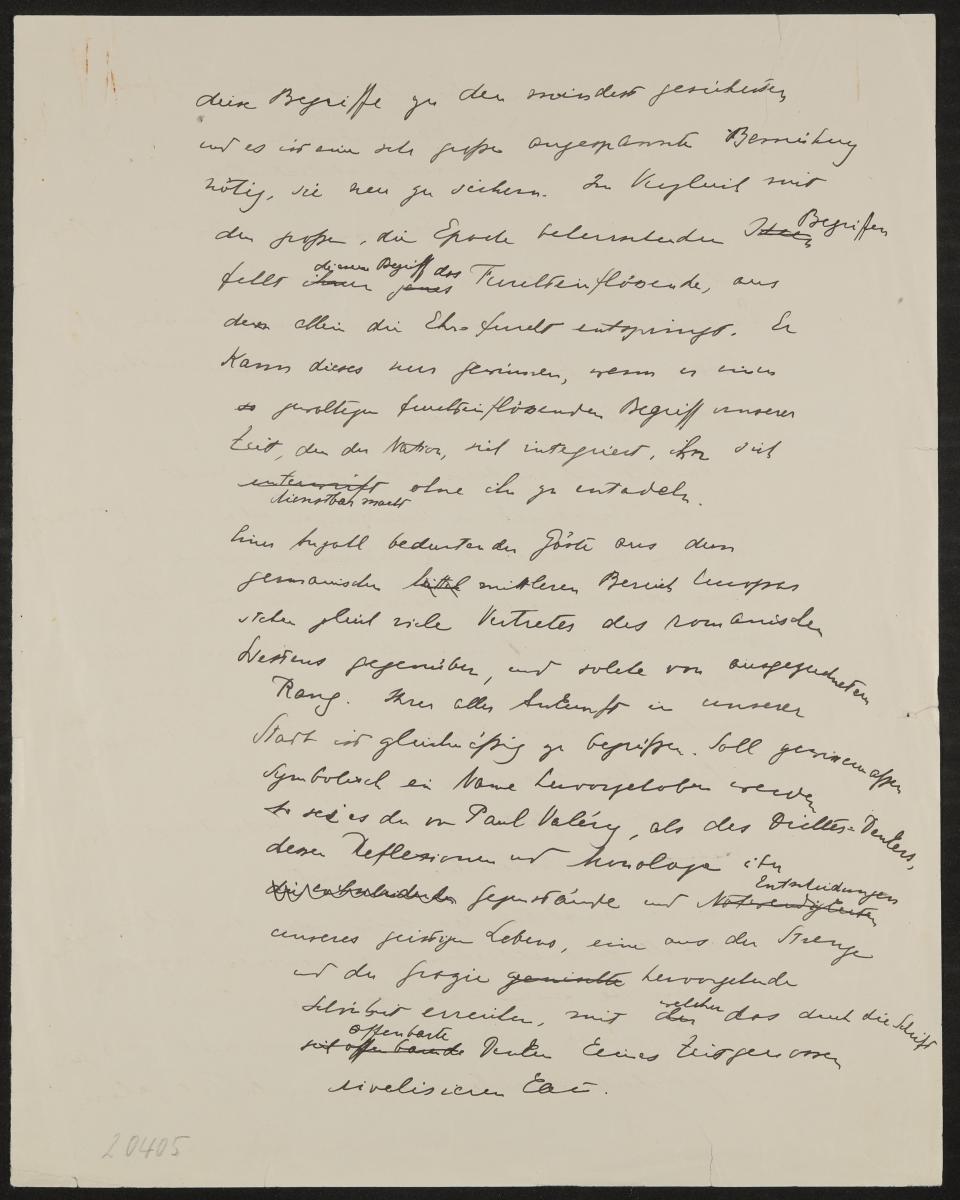 diese Begriffe zu den mindest gesicherten
und es ist eine sehr große angespannte Bemühung
nötig, sie neu zu sichern. Im Vergleich mit
den großen, die Epoche beherrschenden Ideen Begriffen
fehlt ihnen jenes diesem Begriff das Furchteinflößende, aus
dem allein die Ehrfurcht entspringt. Er
kann dieses nur gewinnen, wenn er einen
so gewaltigen furchteinflößenden Begriff unserer
Zeit, den der Nation, sich integriert, ihn sich
unterwirft dienstbar macht ohne ihn zu entadeln.
Einer Anzahl bedeutender Gäste aus dem
germanischen Mittel mittleren Bereich Europas
stehen gleich viele Vertreter des romanischen
Westens gegenüber, und solche von ausgezeichnetem
Rang. Ihrer aller Ankunft in unserer
Stadt ist gleichmäßig zu begrüßen. Soll gewissermassen
symbolisch ein Name hervorgehoben werden
so sei es der von Paul Valéry, als des Dichter-Denkers,
dessen Reflexionen und Monologe über
die entscheidenden Gegenstände und Notwendigkeiten Entscheidungen
unseres geistigen Lebens, eine aus der Strenge
und der Grazie gemischte hervorgehende
Schönheit erreichen, mit der welcher das durch die Schrift
sich offenbarende offenbarte Denken keines Zeitgenossen
rivalisieren kann.
20405